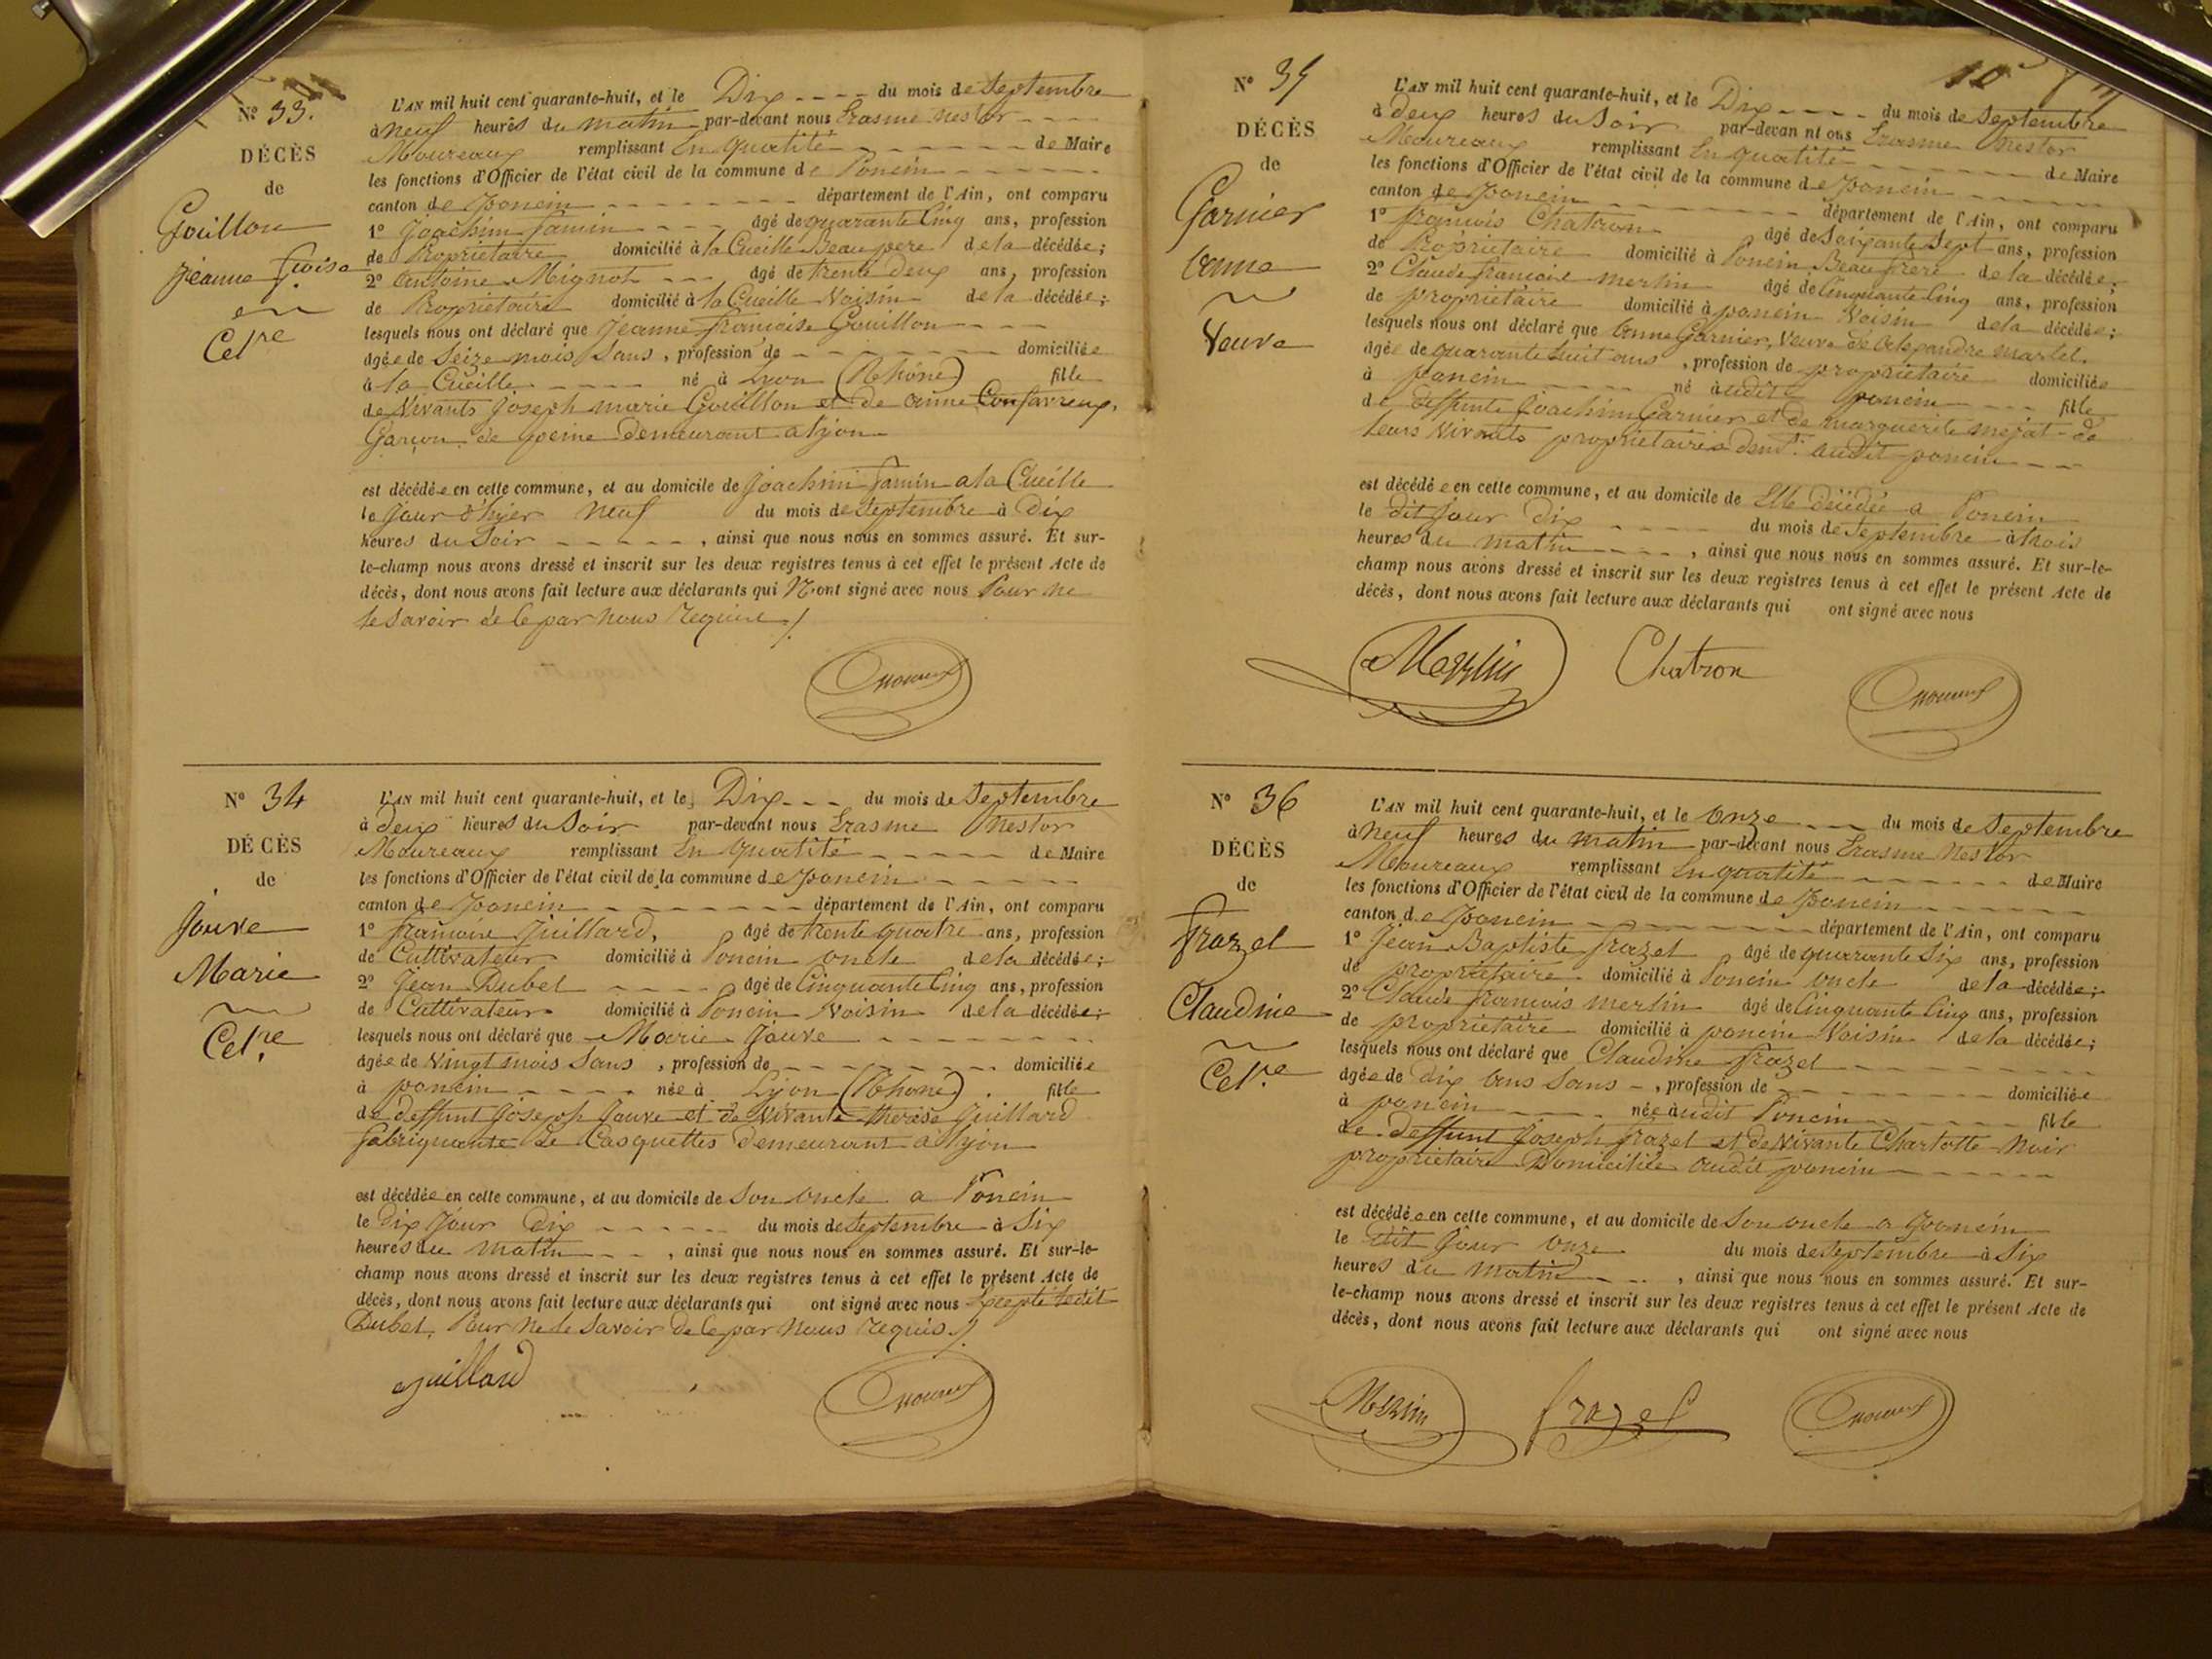 N° 33.
DÉCÈS
de
Gouillon
Jeanne f.çoise
Cel.re
L'AN mil huit cent quarante-huit, et le Dix du mois de Septembre
à neuf heures du matin par-devant nous Erasme Nestor
Moureaux remplissant En qualité de Maire
les fonctions d'Officier de l'état civil de la commune de Poncin
canton de Poncin département de l'Ain, ont comparu
1° Joachim Jamin âgé de quarante Cinq ans, profession
de Propriétaire domicilié à la Cueille Beau pere de la décédée;
2° Antoine Mignot âgé de trente deux ans, profession
de Propriétaire domicilié à la Cueille Voisin de la décédée;
lesquels nous ont déclaré que Jeanne françoise Gouillon
âgée de Seize mois Sans, profession de domiciliée
à la Cueille né à Lyon (Rhône) fille
de Vivants Joseph marie Gouillon et de anne Confavreux,
Garçon de peine Demeurant a lyon
est décédée en cette commune, et au domicile de Joachim Jamin a la Cueille
le jour d'hier neuf du mois de Septembre à Dix
heures du Soir, ainsi que nous nous en sommes assuré. Et sur-
le-champ nous avons dressé et inscrit sur les deux registres tenus à cet effet le présent Acte de
décès, dont nous avons fait lecture aux déclarants qui N'ont signé avec nous Pour ne
le Savoir de ce par nous requis /
N° 34
DÉCÈS
de
Jouve
Marie
Cel.re
L'AN mil huit cent quarante-huit, et le Dix du mois de Septembre
à deux heures du Soir par-devant nous Erasme Nestor
Moureaux remplissant En qualité de Maire
les fonctions d'Officier de l'état civil de la commune de Poncin
canton de Poncin département de l'Ain, ont comparu
1° françois Juillard, âgé de trente quatre ans, profession
de Cultivateur domicilié à Poncin oncle de la décédée;
2° Jean Dubet âgé de Cinquante Cinq ans, profession
de Cultivateur domicilié à Poncin Voisin de la décédée;
lesquels nous ont déclaré que Marie Jouve
âgée de Vingt mois Sans, profession de domiciliée
à poncin née à Lyon (Rhone). fille
de deffunt Joseph Jouve et de Vivante therese Juillard
fabriquante de Casquettes Demeurant a lyon
est décédée en cette commune, et au domicile de Son oncle a Poncin
le Dix Jour Dix du mois de Septembre à Six
heures du matin, ainsi que nous nous en sommes assuré. Et sur-le-
champ nous avons dressé et inscrit sur les deux registres tenus à cet effet le présent Acte de
décès, dont nous avons fait lecture aux déclarants qui ont signé avec nous Excepté ledit
Dubet, Pour ne le Savoir de ce par nous requis /
Juillard
N° 35
DÉCÈS
de
Garnier
anne
Veuve
L'AN mil huit cent quarante-huit, et le Dix du mois de Septembre
à deux heures du Soir par-devan nt ous Erasme Nestor
Moureaux remplissant En qualité de Maire
les fonctions d'Officier de l'état civil de la commune de Poncin
canton de Poncin département de l'Ain, ont comparu
1° françois Chatron âgé de Soixante Sept ans, profession
de Propriétaire domicilié à Poncin Beau frere de la décédée;
2° Claude françois merlin âgé de Cinquante Cinq ans, profession
de propriétaire domicilié à poncin Voisin de la décédée;
lesquels nous ont déclaré que anne Garnier, Veuve de alexandre martel.
âgée de quarante huit ans, profession de propriétaire domiciliée
à poncin né audit poncin fille
de deffunte Joachim Garnier et de marguerite mejat de
leurs Vivants propriétaires dem.t audit poncin
est décédée en cette commune, et au domicile de Elle décédée a Poncin
le dit Jour Dix du mois de Septembre à trois
heures du matin, ainsi que nous nous en sommes assuré. Et sur-le-
champ nous avons dressé et inscrit sur les deux registres tenus à cet effet le présent Acte de
décès, dont nous avons fait lecture aux déclarants qui ont signé avec nous
Merlin Chatron
N° 36
DÉCÈS
de
frazel
Claudine
Cel.re
L'AN mil huit cent quarante-huit, et le onze du mois de Septembre
à neuf heures du matin par-devant nous Erasme Nestor
Moureaux remplissant En qualité de Maire
les fonctions d'Officier de l'état civil de la commune de Poncin
canton de Poncin département de l'Ain, ont comparu
1° Jean Baptiste frazel âgé de quarante Six ans, profession
de propriétaire domicilié à Poncin oncle de la décédée;
2° Claude françois merlin âgé de Cinquante Cinq ans, profession
de propriétaire domicilié à poncin Voisin de la décédée;
lesquels nous ont déclaré que Claudine frazel
âgée de dix ans Sans, profession de domiciliée
à poncin née audit Poncin fille
de deffunt Joseph frazel et de Vivante Charlotte Noir
propriétaire Domiciliée audit poncin
est décédée en cette commune, et au domicile de Son oncle a poncin
le dit Jour onze du mois de Septembre à Six
heures du matin, ainsi que nous nous en sommes assuré. Et sur-
le-champ nous avons dressé et inscrit sur les deux registres tenus à cet effet le présent Acte de
décès, dont nous avons fait lecture aux déclarants qui ont signé avec nous
Merlin frazel